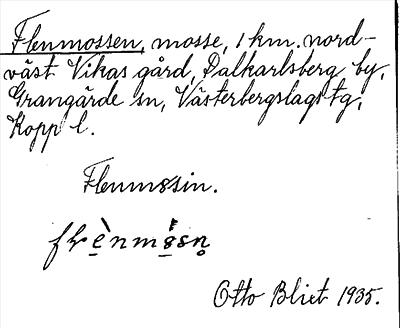 Flenmossen, mosse, 1 km. nord-
väst Vikas gård, Dalkarlsberg by,
Grangärde sn, Västerbergslags tg,
Kopp l.
Flenmosin.
Otto Blixt 1935.